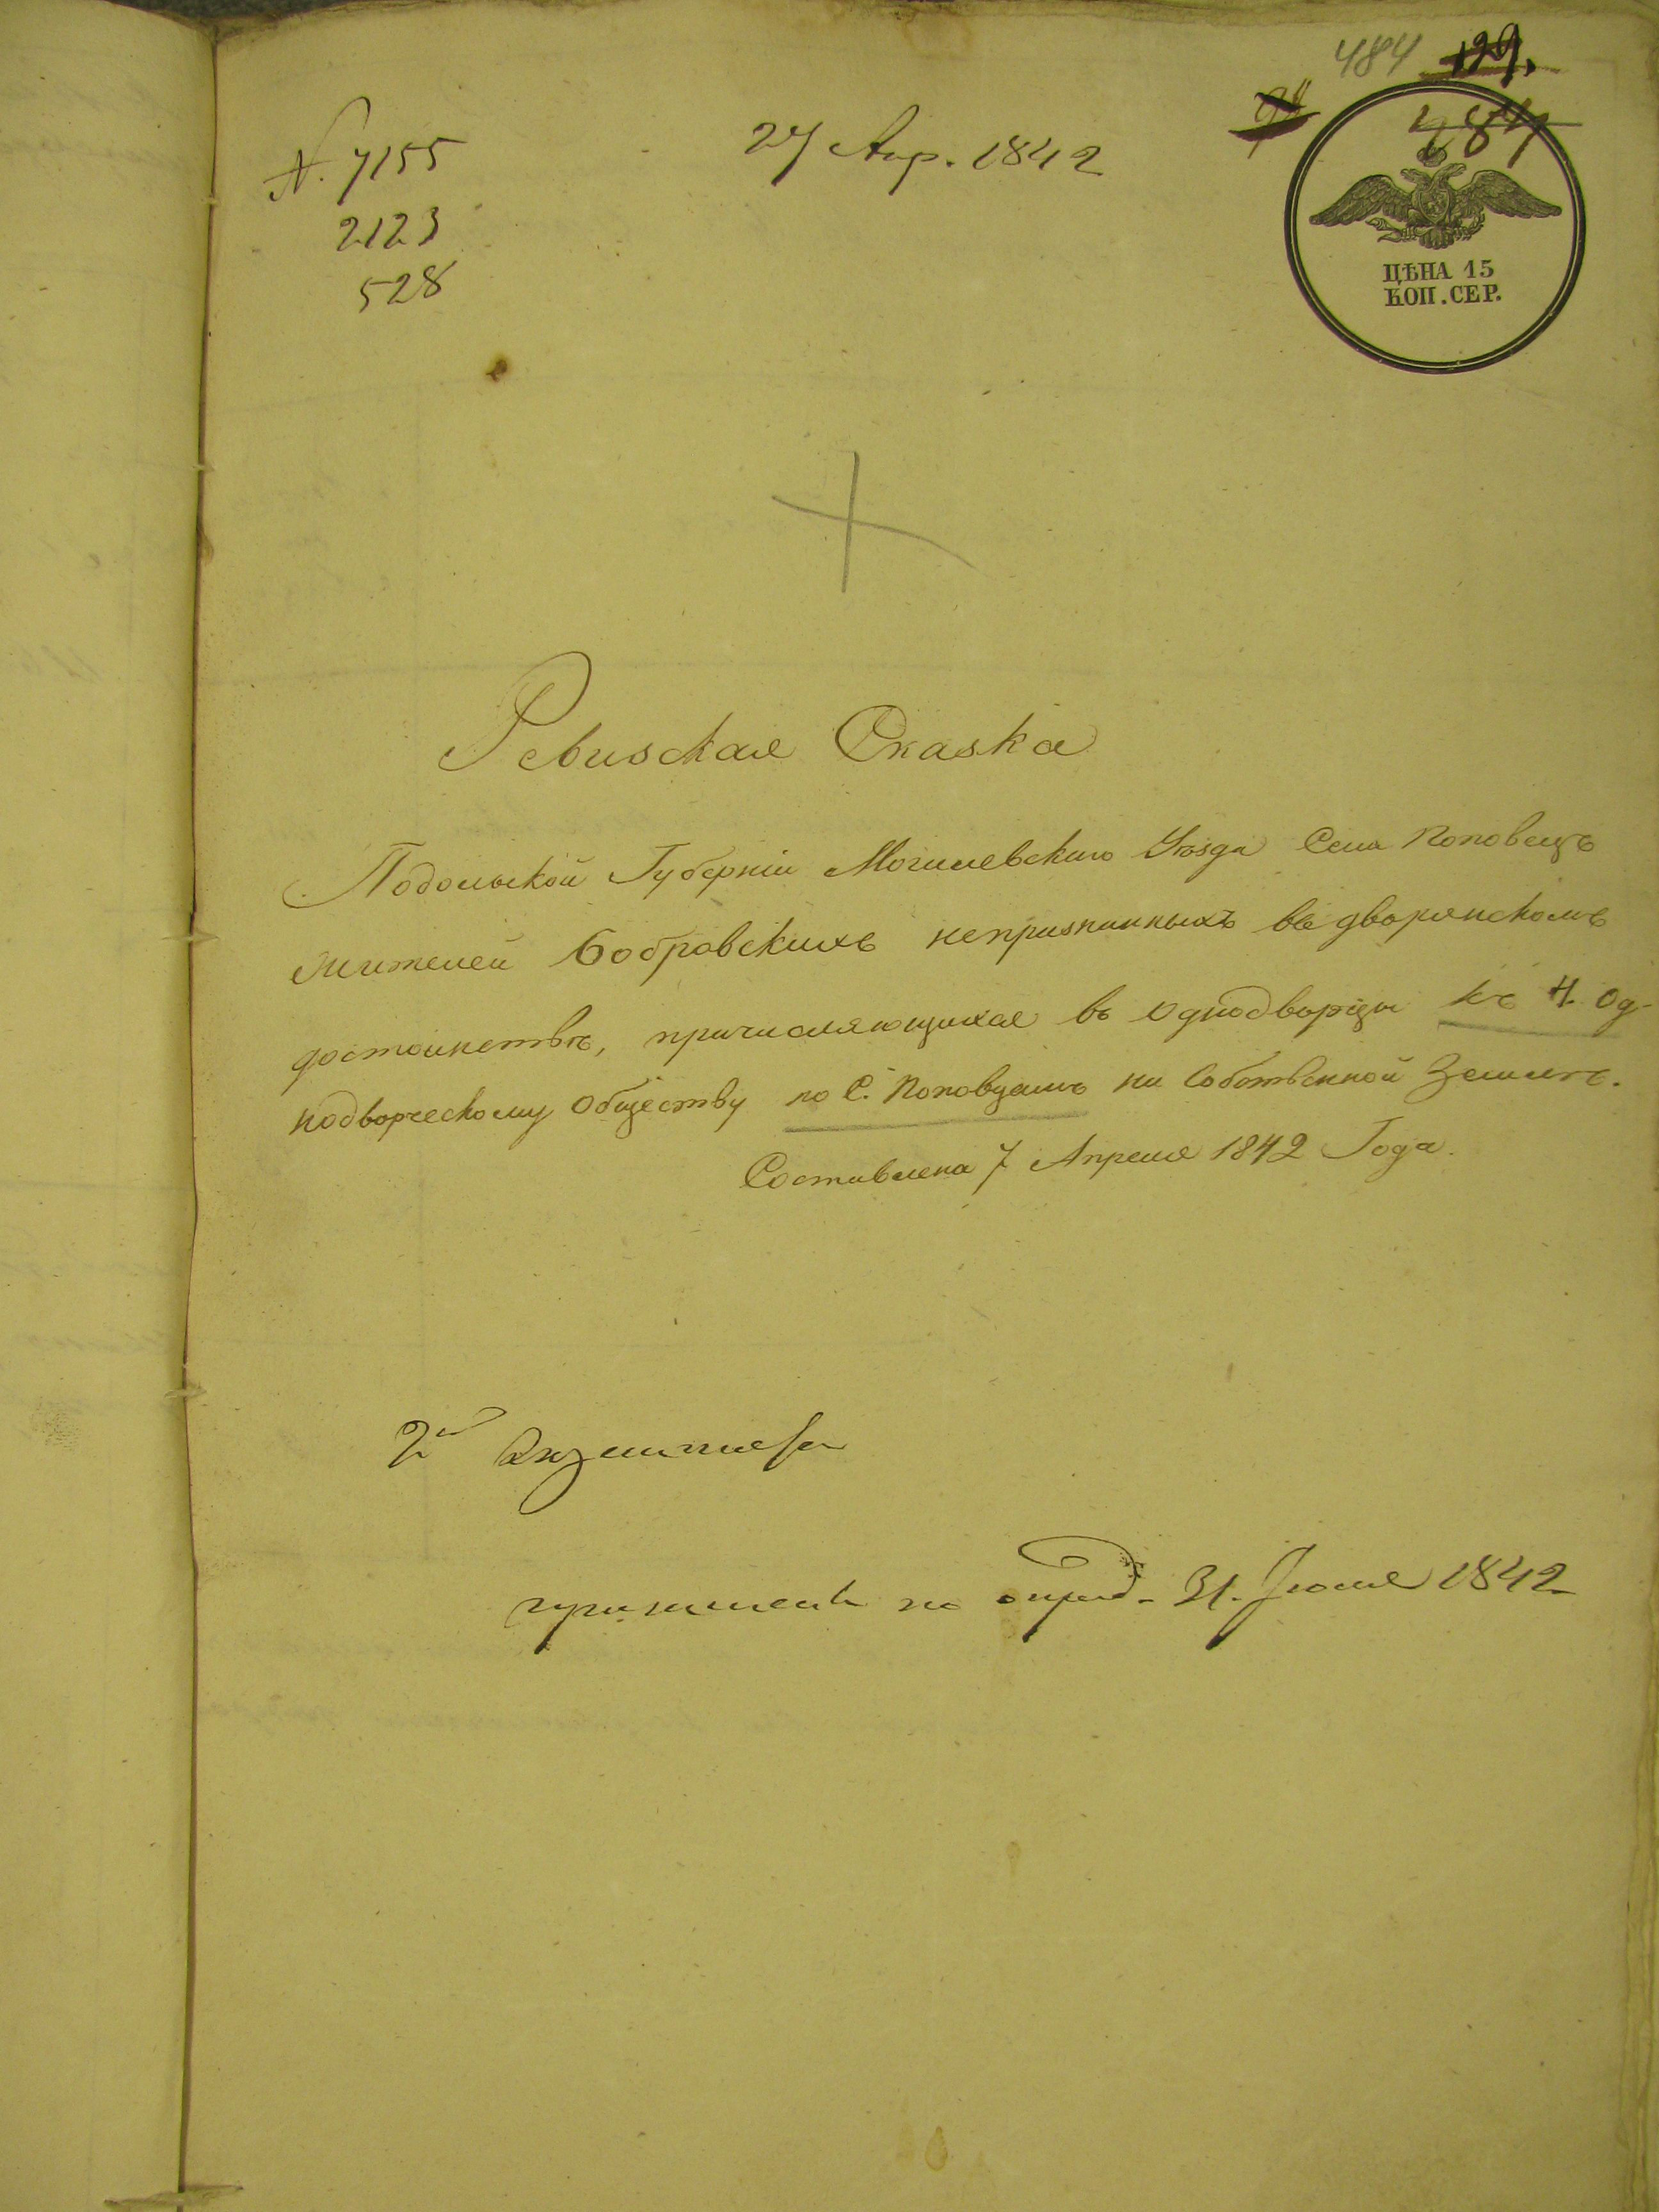 484 129.
484
№. 7155
27 Апр. 1842
2123
528
ЦѢНА 15
КОП. СЕР.
Ревизская Сказка
Подольской Губерніи Могилевскаго Уѣзда Села Поповецъ
жителей Бобровскихъ непризнанныхъ въ дворянскомъ
достоинствѣ, причисляющихся въ Однодворцы къ 4. Од-
нодворческому Обществу по С. Поповцамъ на Собственной Землѣ.
Составлена 7 Апреля 1842 Года.
2й Экземпляръ
по опред. 31. Іюля 1842